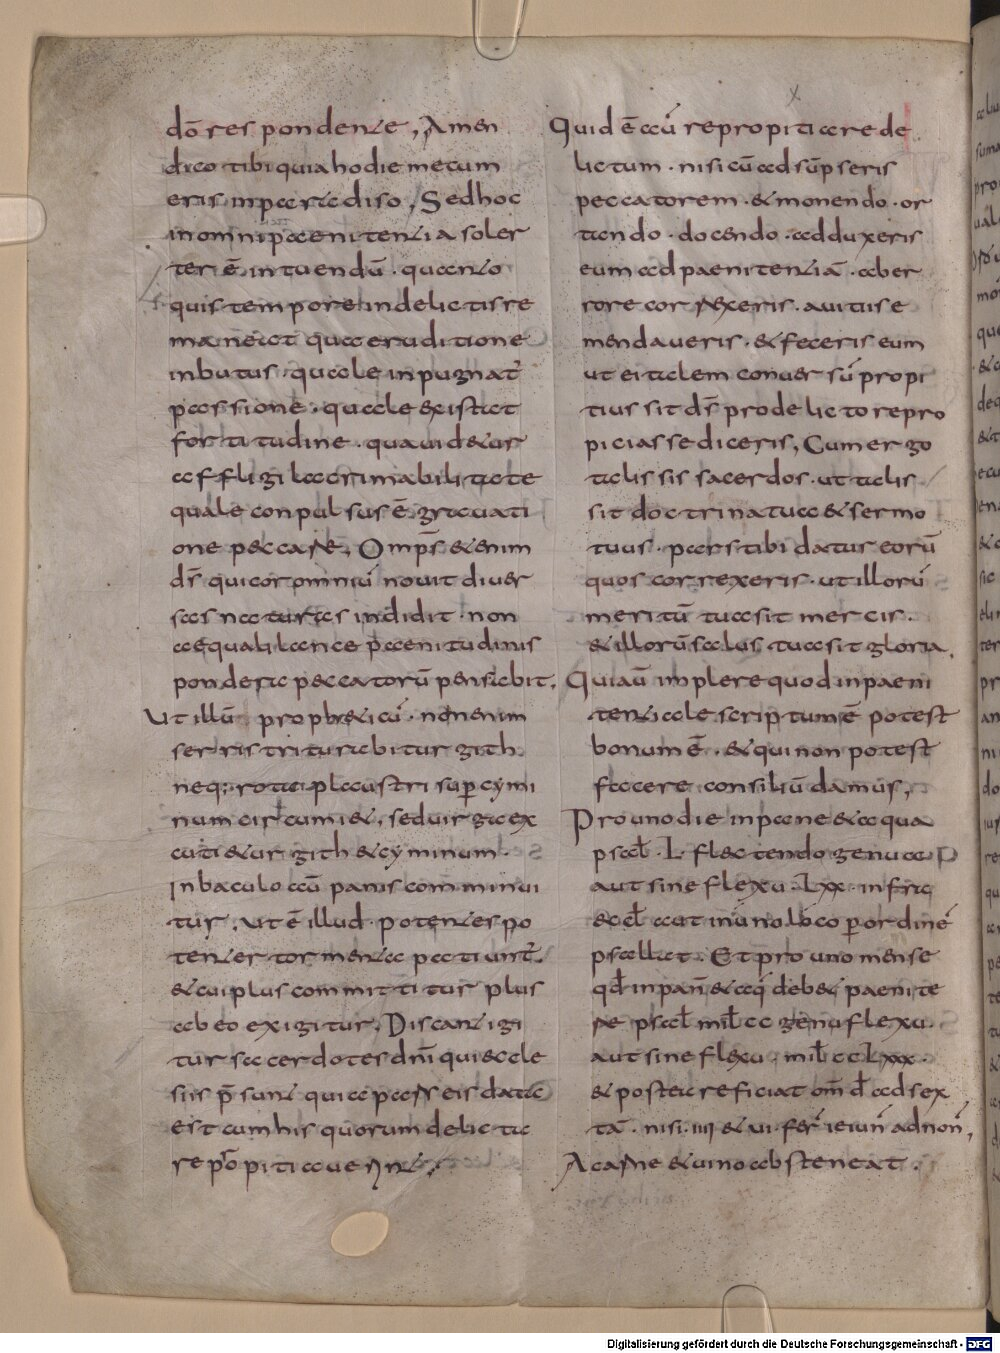 dō respondente, Amen
dico tibi quia hodie mecum
eris inparadiso, Sed hoc
inomni paenitentia soler
ter ē intuendū · quanto
quis tempore indelictis re
maneat qua eruditione
inbutus · quale inpugnat᷒
passione · quale existat
fortitudine · qua uidetur
affligi lacrimabilitate
quale conpulsus ē grauati
one peccare, Omp̄s etenim
d̄s qui cor omniū nouit diuer
sas naturas indidit · non
aequali lance paenitudinis
pondera peccatorū pensabit.
Ut illū propheticū · non enim
serris triturabitur gith
neq; rota plaustri sup cymi
num circumiet, sed uirga ex
cutietur gith et cyminum ·
In baculo aū panis comminui
tur, ut ē illud potentes po
tenter tormenta patiunt᷒.
et cui plus committitur plus
ab eo exigitur, Discant igi
tur sacerdotes dn̄i qui eccle
siis p̄sunt quia pars eis data
est cum his quorum delicta
repropitiauerint,
Quid ē aū repropitiare de
lictum · nisi cū adsūpseris
peccatorem · et monendo · or
tando · docendo · adduxeris
eum ad paenitentiā · ab er
rore correxeris · a uitiis e
mendaueris · et feceris eum
ut ei talem conuersū propi
tius sit d̄s pro delicto repro
piciasse diceris, Cum ergo
talis sis sacerdos · ut talis
sit doctrina tua et sermo
tuus · pars tibi datur eorū
quos correxeris · ut illorū
meritū tua sit mercis ·
et illorū salus tua sit gloria.
Qui aū implere quod inpaeni
tentiale scriptum ē potest
bonum ē · et qui non potest
facere consiliū damus,
Pro uno die inpane et aqua
psal̄ · L · flectendo genua
aut sine flexu · Lxx · infra
ecl̄ aut in uno loco p ordinē
psallat · Et pro uno mense
qd̄ inpan̄ et aq̄ debet paenite
re psal̄ mil̄ cc genu flexu ·
aut sine flexu · mil̄ cc Lxxx ·
et postea reficiat om̄ d̄ ad sex
tā · nisi · IIII et ui · fer̄ ieiun̄ ad non̄,
A carne et uino absteneat ·
Digitalisierung gefördert durch die Deutsche Forschungsgemeinschaft - DFG